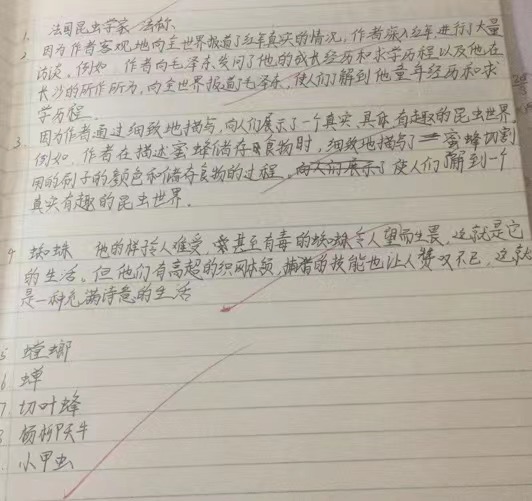 1. 法国昆虫学家 法布尔
2. 因为作者客观地向全世界报道了红军真实的情况,作者深入红军,进行了大量
访谈,例如 作者向毛泽东询问了他的成长经历和求学历程以及他在
长沙的所作所为,向全世界报道了毛泽东,使人们了解到他童年经历和求
学历程
3. 因为作者通过细致地描写,向人们展示了一个真实、具体有趣的昆虫世界
例如 作者在描述蜜蜂储存食物时,细致地描写了 蜜蜂切割
用的 子的颜色和储存食物的过程,向人们展示了使人们了解到一个
真实有趣的昆虫世界.
4 蜘蛛 他的样 令人难受,甚至有毒的蜘蛛令人望而生畏,这就是它
的生活,但他们有高超的织网本领,捕猎的技能也让人赞叹不已,这就
是一种充满诗意的生活
5 螳螂
6 蝉
7 切叶蜂
杨柳天牛
小甲虫